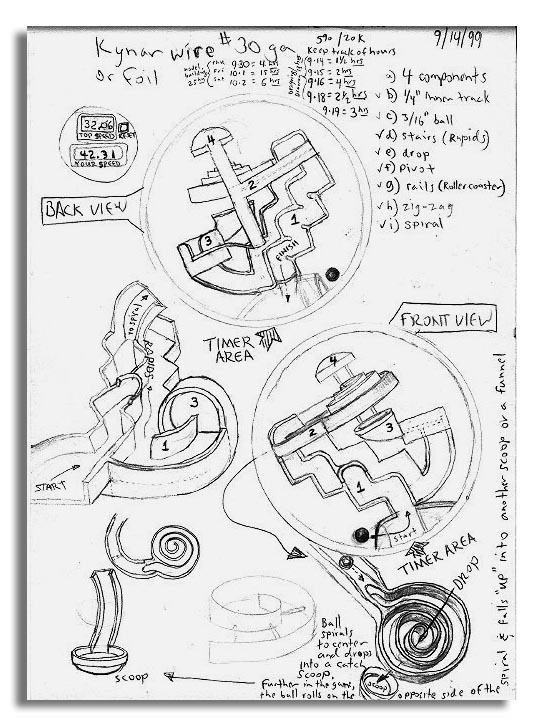 Kynar wire #30 ga
or Foil
590 / 20K
9/14/99
Keep track of hours
model building 25 hrs
Thur 9.30 = 4 hrs
Fri 10.1 = 15 hrs
Sat 10.2 = 6 hrs
9.14 = 1½ hrs
9.15 = 2 hrs
9.16 = 4 hrs
9.18 = 2½ hrs
9.19 = 3 hrs
a) 4 components
b) 1/4" inner track
c) 3/16" ball
d) stairs (Rapids)
e) drop
f) pivot
g) rails (Rollercoaster)
h) zig-zag
i) spiral
TOP SPEED RESET
42.31
YOUR SPEED
BACK VIEW
4
2
1
3
FINISH
TIMER
AREA
FRONT VIEW
TO SPIRAL
RAPIDS
3
1
START
4
2
3
1
start
TIMER AREA
DROP
Ball
spirals
to center
and drops
into a catch
scoop.
Further in the game,
the ball rolls on the opposite side of the
spiral & falls "up" into another scoop or a funnel
scoop
scoop